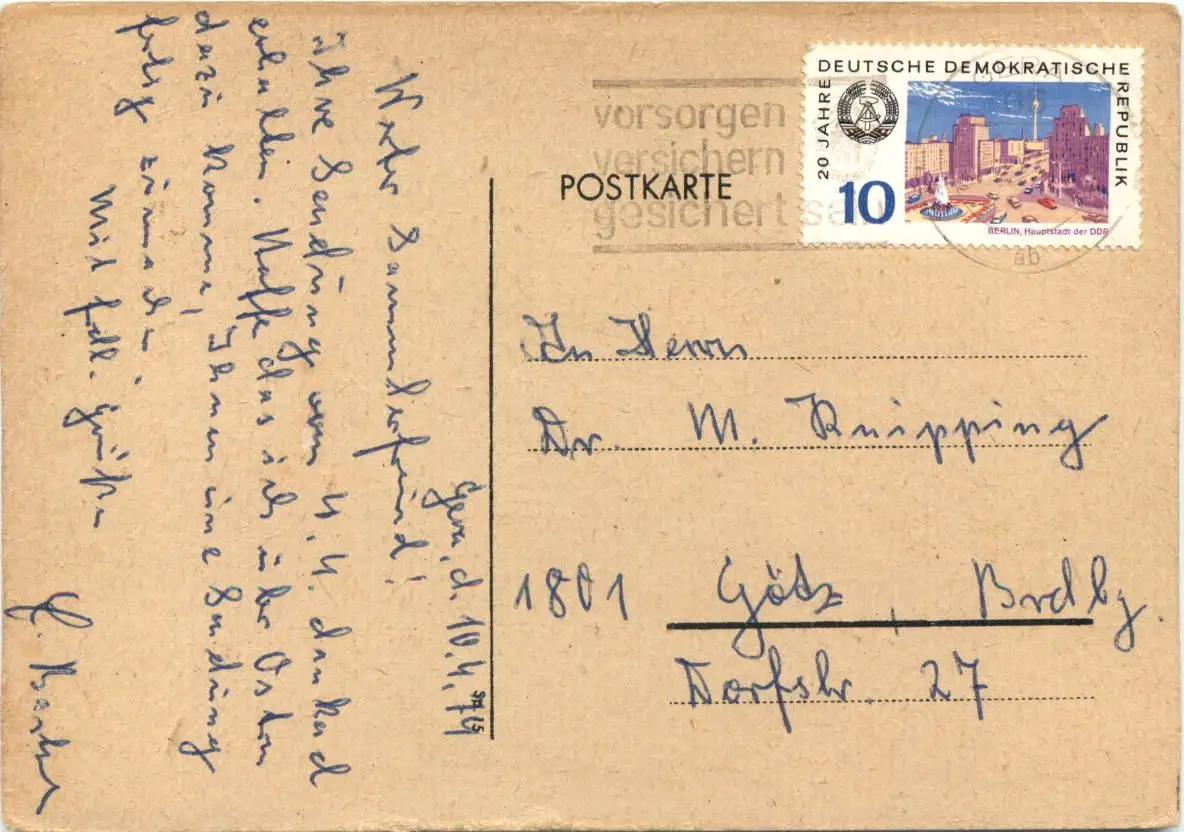 Gera, d. 10.4.74
Werter Sammlerfreund!
Ihre Sendung vom 4.4. dankend
erhalten. Hoffe das ich über Ostern
dazu komme, Ihnen eine Sendung
fertig zu machen.
Mit frdl. Grüßen
POSTKARTE
vorsorgen
versichern
gesichert sein
DEUTSCHE DEMOKRATISCHE REPUBLIK
20 JAHRE
10
BERLIN, Hauptstadt der DDR
GERA
ab
An Herrn
Dr. M. Knipping
1801 Götz, Brdbg.
Dorfstr. 27